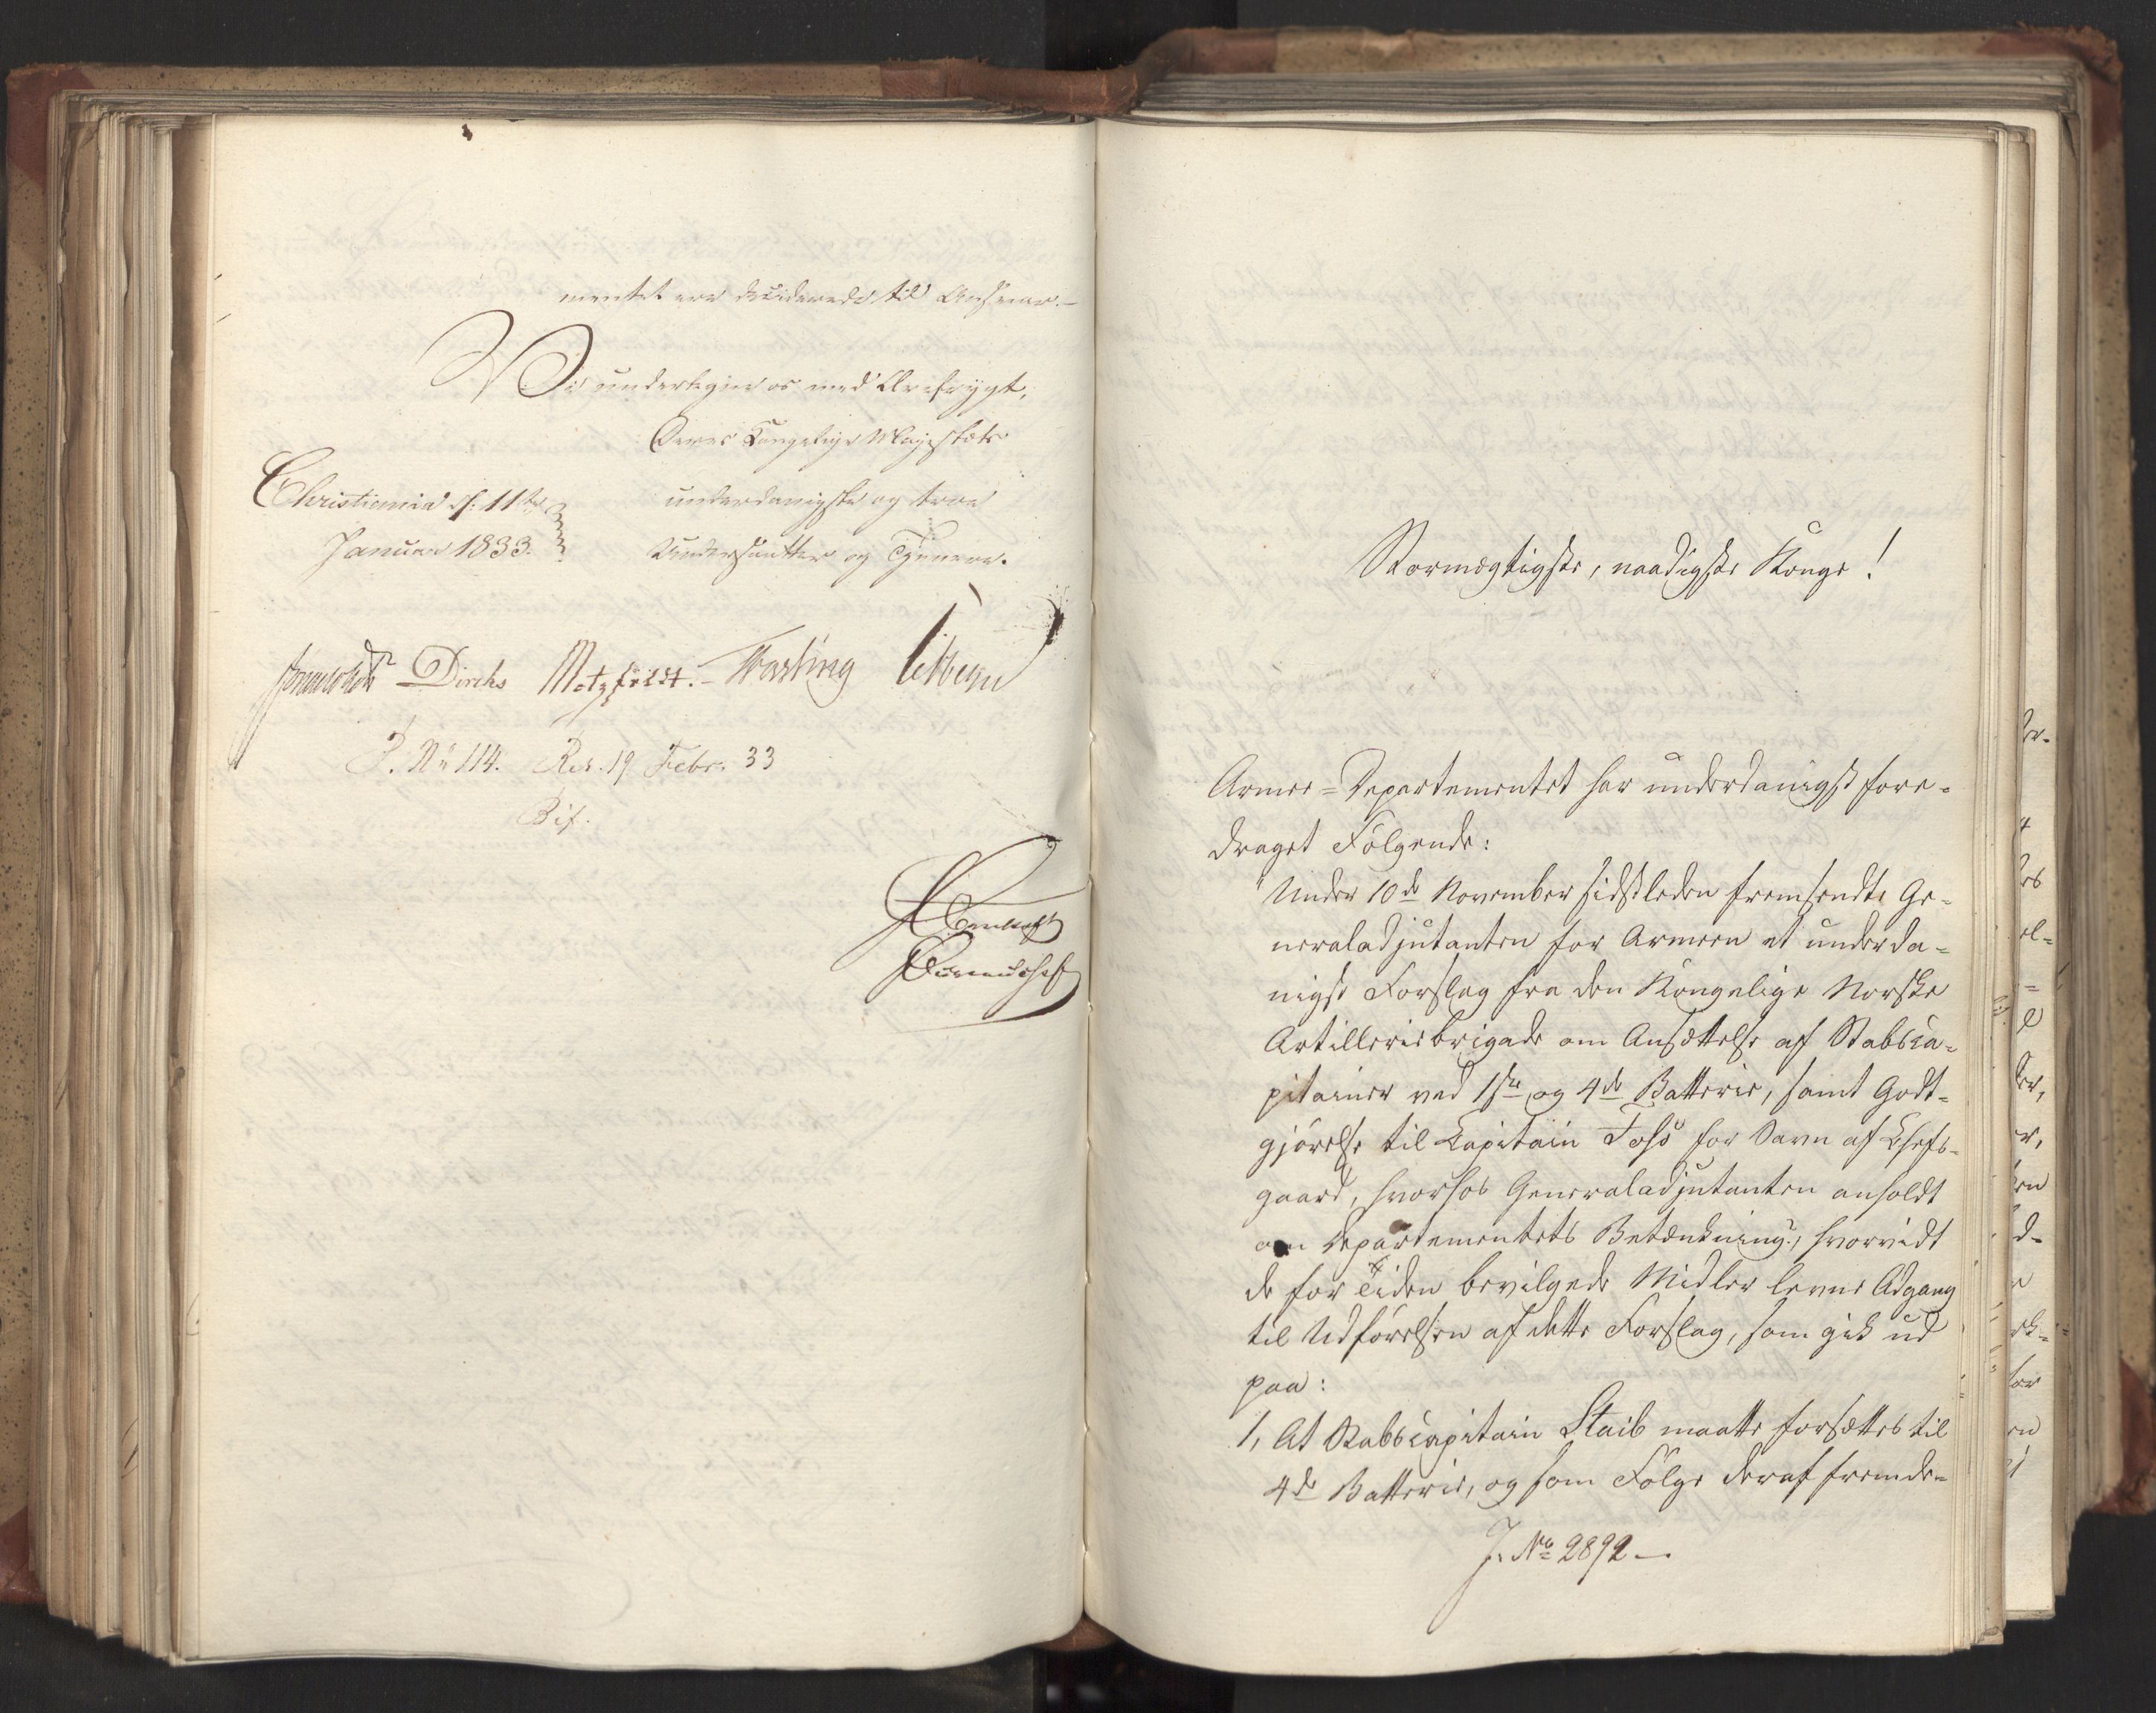 mentet ere deciderede til Ansvar.—
Vi undertegne os med Ærefrygt,
Deres Kongelige Majestæts
Christiania d: 11te
underdanigste og troe
Januar 1833.
Undersaatter og Tjenere.
Diriks Motzfeldt.- Fasting
P. No 114. Res. 19 Febr. 33
Bif.
Stormægtigste, naadigste Konge!
Armee=Departementet har underdanigst fore-
draget Følgende:
"Under 10de November sidstleden fremsendte Ge-
neraladjutanten for Armeen et underda-
nigst Forslag fra den Kongelige Norske
Artilleriebrigade om Ansættelse af Stabsca-
pitainer ved 1ste og 4de Batterie, samt Godt-
gjörelse til Capitain Foss for Savn af Chefs-
gaard, hvorhos Generaladjutanten anholdt
om Departementets Betænkning, hvorvidt
de for Tiden bevilgede Midler levne Adgang
til Udförelsen af dette Forslag, som gik ud
paa:
1, At Stabscapitain Staib maatte forsættes til
4de Batterie, og som Fölge deraf fremde-
J. No 2892—